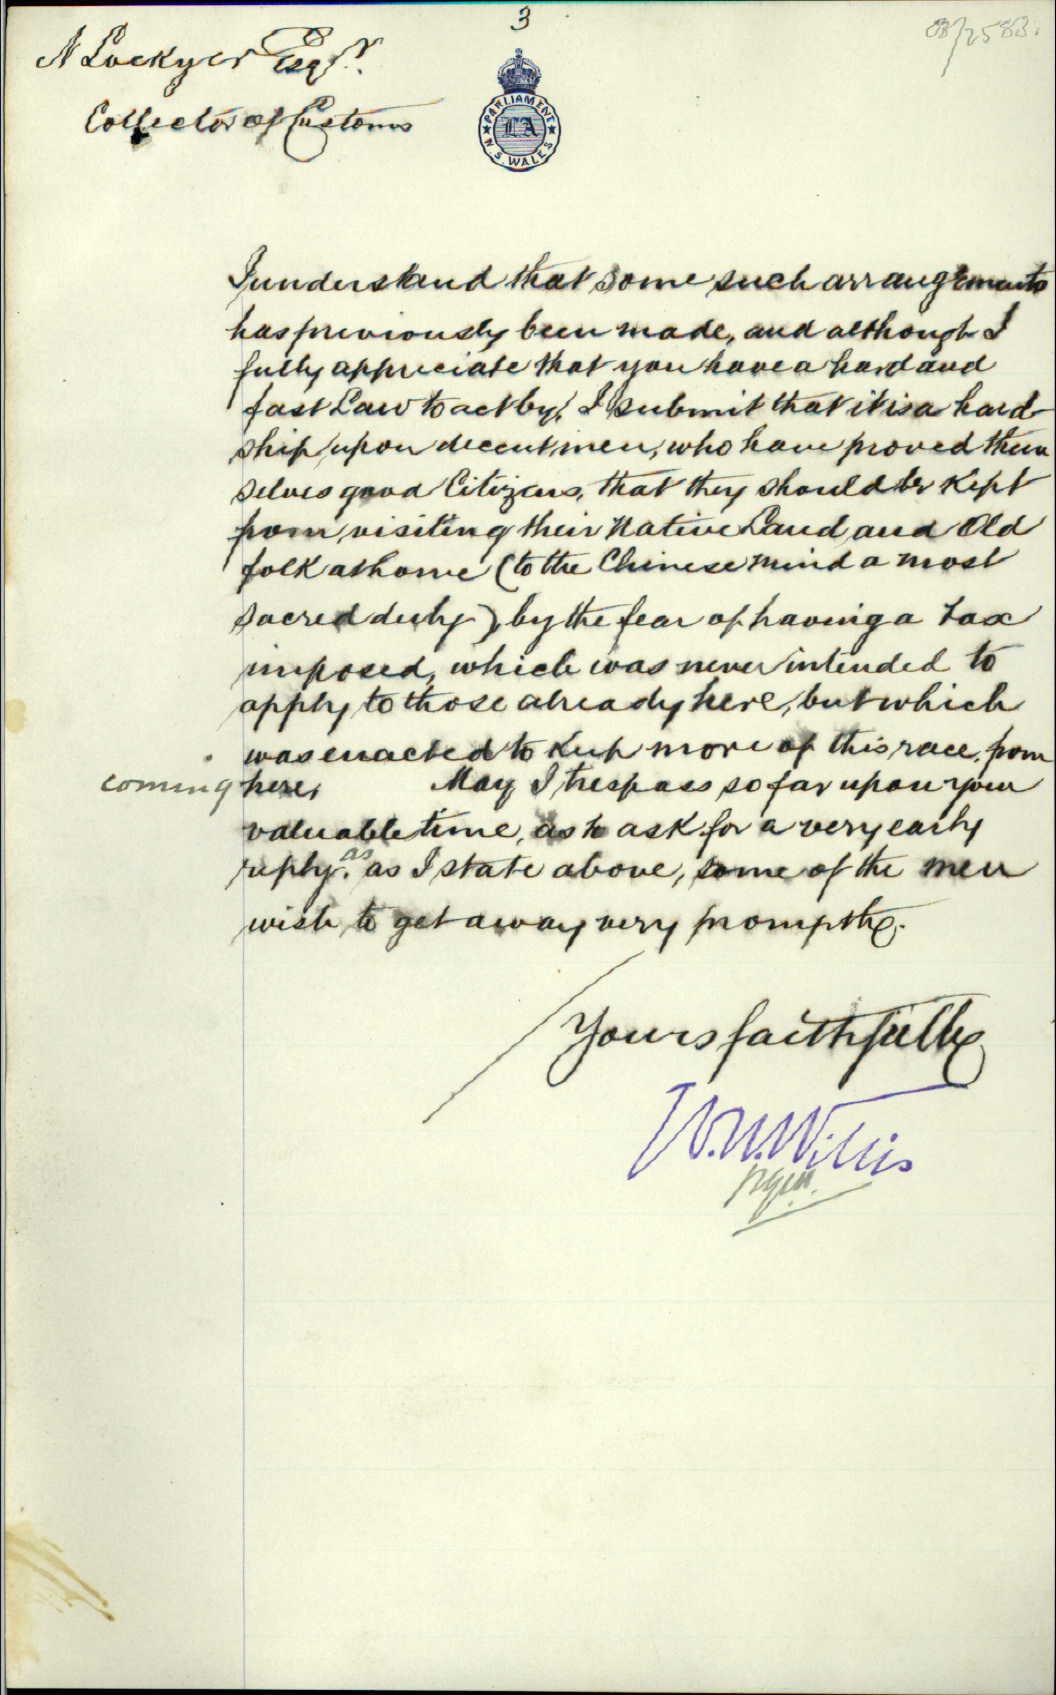 3
N Lockyer Esqr.
Collector of Customs
PARLIAMENT
LA
N.S. WALES
I understand that some such arrangements
has previously been made, and although I
fully appreciate that you have a hard and
fast Law to act by, I submit that it is a hard-
ship upon decent men, who have proved them
selves good Citizens, that they should be kept
from visiting their Native Land and Old
folk at home (to the Chinese mind a most
sacred duty), by the fear of having a tax
imposed, which was never intended to
apply to those already here, but which
was enacted to keep more of this race, from
coming here, May I trespass so far upon your
valuable time, as to ask for a very early
reply. as as I state above, some of the men
wish to get away very promptly.
Yours faithfully
W.N. Willis